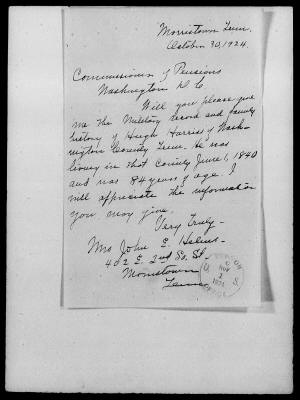 Morristown Tenn.
October 30, 1924.
Commissioner of Pensions
Washington D. C.
Will you please give
me the Military record and family
history of Hugh Harris of Wash-
ington County Tenn. He was
living in that County June 1, 1840
and was 84 years of age. I
will appreciate the information
you may give.
Very Truly-
Mrs John E. Helms-
402 E. 2nd So. St.
Morristown
Tenn.
NOV
1924
U. S.